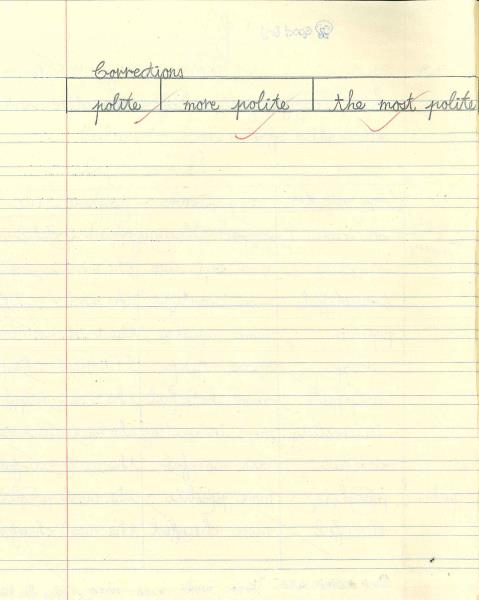 Corrections
polite more polite the most polite